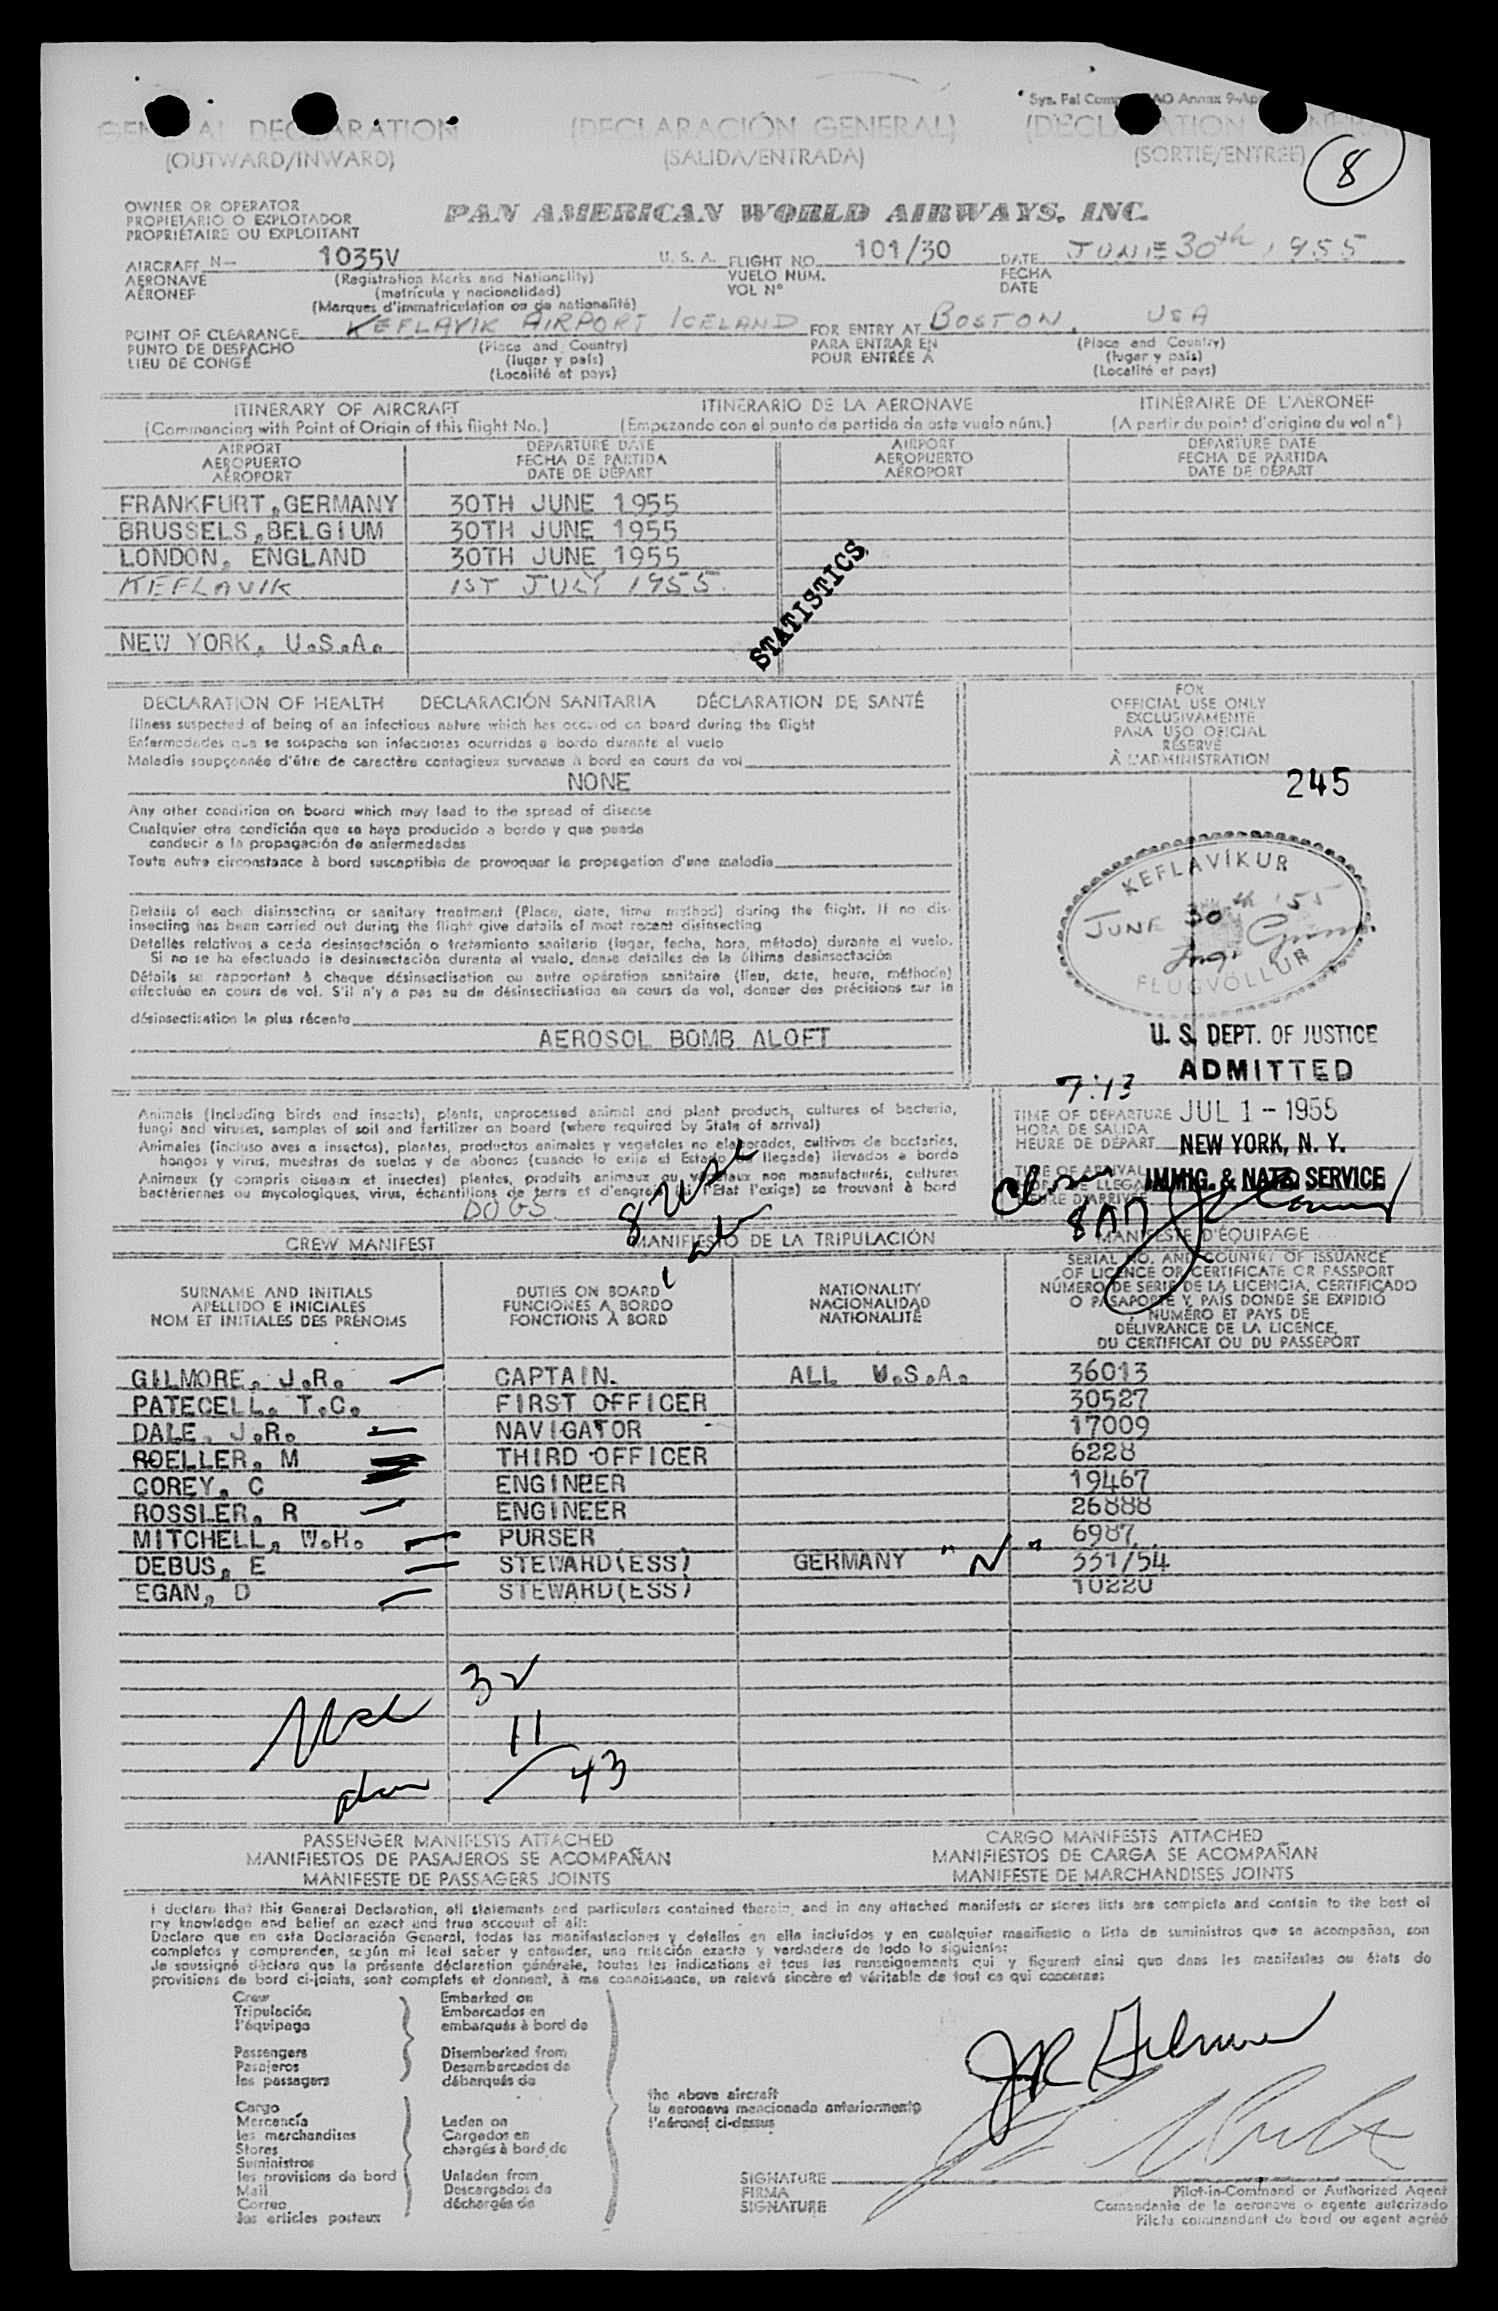 Sys. Fal Comp AO Annex 9-Ap
GENERAL DECLARATION (DECLARACIÓN GENERAL) (DECLARATION GENERALE)
(OUTWARD/INWARD) (SALIDA/ENTRADA) (SORTIE/ENTREE)
8
OWNER OR OPERATOR
PROPIETARIO O EXPLOTADOR
PROPRIÉTAIRE OU EXPLOITANT
PAN AMERICAN WORLD AIRWAYS, INC.
AIRCRAFT N- 1035V U. S. A. FLIGHT NO. 101/30 DATE JUNE 30th, 1955
AERONAVE (Registration Marks and Nationality) VUELO NUM. FECHA
AÉRONEF (matrícula y nacionalidad) VOL N° DATE
(Marques d'immatriculation ou de nationalité)
POINT OF CLEARANCE KEFLAVIK AIRPORT ICELAND FOR ENTRY AT BOSTON, USA
PUNTO DE DESPACHO (Place and Country) PARA ENTRAR EN (Place and Country)
LIEU DE CONGÉ (lugar y país) POUR ENTRÉE À (lugar y país)
(Localité et pays) (Localité et pays)
ITINERARY OF AIRCRAFT ITINERARIO DE LA AERONAVE ITINÉRAIRE DE L'AÉRONEF
(Commencing with Point of Origin of this flight No.) (Empezando con el punto de partida de este vuelo núm.) (A partir du point d'origine du vol n°)
AIRPORT DEPARTURE DATE AIRPORT DEPARTURE DATE
AEROPUERTO FECHA DE PARTIDA AEROPUERTO FECHA DE PARTIDA
AÉROPORT DATE DE DÉPART AÉROPORT DATE DE DÉPART
FRANKFURT,GERMANY 30TH JUNE 1955
BRUSSELS,BELGIUM 30TH JUNE 1955
LONDON, ENGLAND 30TH JUNE 1955
KEFLAVIK 1ST JULY 1955.
STATISTICS
NEW YORK, U.S.A.
DECLARATION OF HEALTH DECLARACIÓN SANITARIA DÉCLARATION DE SANTÉ
Illness suspected of being of an infectious nature which has occured on board during the flight
Enfermedades que se sospecha son infecciosas ocurridas a bordo durante el vuelo
Maladie soupçonnée d'être de caractère contagieux survenue à bord en cours de vol
NONE
Any other condition on board which may lead to the spread of disease
Cualquier otra condición que se haya producido a bordo y que pueda
conducir a la propagación de enfermedades
Toute autre circonstance à bord susceptible de provoquer la propagation d'une maladie
Details of each disinsecting or sanitary treatment (Place, date, time method) during the flight. If no dis-
insecting has been carried out during the flight give details of most recent disinsecting
Detalles relativos a cada desinsectación o tratamiento sanitario (lugar, fecha, hora, método) durante el vuelo.
Si no se ha efectuado la desinsectación durante el vuelo, dense detalles de la última desinsectación
Détails se rapportant à chaque désinsectisation ou autre opération sanitaire (lieu, date, heure, méthode)
effectuée en cours de vol. S'il n'y a pas eu de désinsectisation en cours de vol, donner des précisions sur la
désinsectisation la plus récente
AEROSOL BOMB ALOFT
FOR
OFFICIAL USE ONLY
EXCLUSIVAMENTE
PARA USO OFICIAL
RÉSERVÉ
À L'ADMINISTRATION
245
KEFLAVÍKUR
JUNE 30th '55
FLUGVÖLLUR
U. S. DEPT. OF JUSTICE
ADMITTED
7:13
TIME OF DEPARTURE JUL 1 - 1955
HORA DE SALIDA
HEURE DE DÉPART NEW YORK, N. Y.
TIME OF ARRIVAL IMMIG. & NATZ. SERVICE
8 AM
Animals (Including birds and insects), plants, unprocessed animal and plant products, cultures of bacteria,
fungi and viruses, samples of soil and fertilizer on board (where required by State of arrival)
Animales (incluso aves e insectos), plantas, productos animales y vegetales no elaborados, cultivos de bacterias,
hongos y virus, muestras de suelos y de abonos (cuando lo exija el Estado de llegada) llevados a bordo
Animaux (y compris oiseaux et insectes) plantes, produits animaux ou végétaux non manufacturés, cultures
bactériennes ou mycologiques, virus, échantillons de terre et d'engrais (si l'État l'exige) se trouvant à bord
DOGS
CREW MANIFEST MANIFIESTO DE LA TRIPULACIÓN MANIFESTE D'ÉQUIPAGE
SURNAME AND INITIALS DUTIES ON BOARD NATIONALITY SERIAL NO. AND COUNTRY OF ISSUANCE
APELLIDO E INICIALES FUNCIONES A BORDO NACIONALIDAD OF LICENCE OR CERTIFICATE OR PASSPORT
NOM ET INITIALES DES PRÉNOMS FONCTIONS À BORD NATIONALITÉ NÚMERO DE SERIE DE LA LICENCIA, CERTIFICADO
O PASAPORTE Y PAÍS DONDE SE EXPIDIÓ
NUMÉRO ET PAYS DE
DÉLIVRANCE DE LA LICENCE,
DU CERTIFICAT OU DU PASSEPORT
GILMORE, J.R. CAPTAIN. ALL U.S.A. 36013
PATECELL, T.C. FIRST OFFICER 30527
DALE, J.R. NAVIGATOR 17009
ROELLER, M THIRD OFFICER 6228
COREY, C ENGINEER 19467
ROSSLER, R ENGINEER 26888
MITCHELL, W.H. PURSER 6987
DEBUS, E STEWARD(ESS) GERMANY "N" 331/54
EGAN, D STEWARD(ESS) 10220
32
11
43
PASSENGER MANIFESTS ATTACHED CARGO MANIFESTS ATTACHED
MANIFIESTOS DE PASAJEROS SE ACOMPAÑAN MANIFIESTOS DE CARGA SE ACOMPAÑAN
MANIFESTE DE PASSAGERS JOINTS MANIFESTE DE MARCHANDISES JOINTS
I declare that this General Declaration, all statements and particulars contained therein, and in any attached manifests or stores lists are complete and contain to the best of
my knowledge and belief an exact and true account of all:
Declaro que en esta Declaración General, todas las manifestaciones y detalles en ella incluídos y en cualquier manifiesto o lista de suministros que se acompañan, son
completos y comprenden, según mi leal saber y entender, una relación exacta y verdadera de todo lo siguiente:
Je soussigné déclare que la présente déclaration générale, toutes les indications et tous les renseignements qui y figurent ainsi que dans les manifestes ou états de
provisions de bord ci-joints, sont complets et donnent, à ma connaissance, un relevé sincère et véritable de tout ce qui concerne:
Crew Embarked on
Tripulación Embarcados en
l'équipage embarqués à bord de
Passengers Disembarked from
Pasajeros Desembarcados de
les passagers débarqués de
the above aircraft
la aeronave mencionada anteriormente
l'aéronef ci-dessus
Cargo
Mercancía Laden on
les marchandises Cargados en
Stores chargés à bord de
Suministros
les provisions de bord Unladen from
Mail Descargados de
Correo déchargés de
les articles postaux
JR Gilmore
SIGNATURE
FIRMA
SIGNATURE
Pilot-in-Command or Authorized Agent
Comandante de la aeronave o agente autorizado
Pilote commandant de bord ou agent agréé